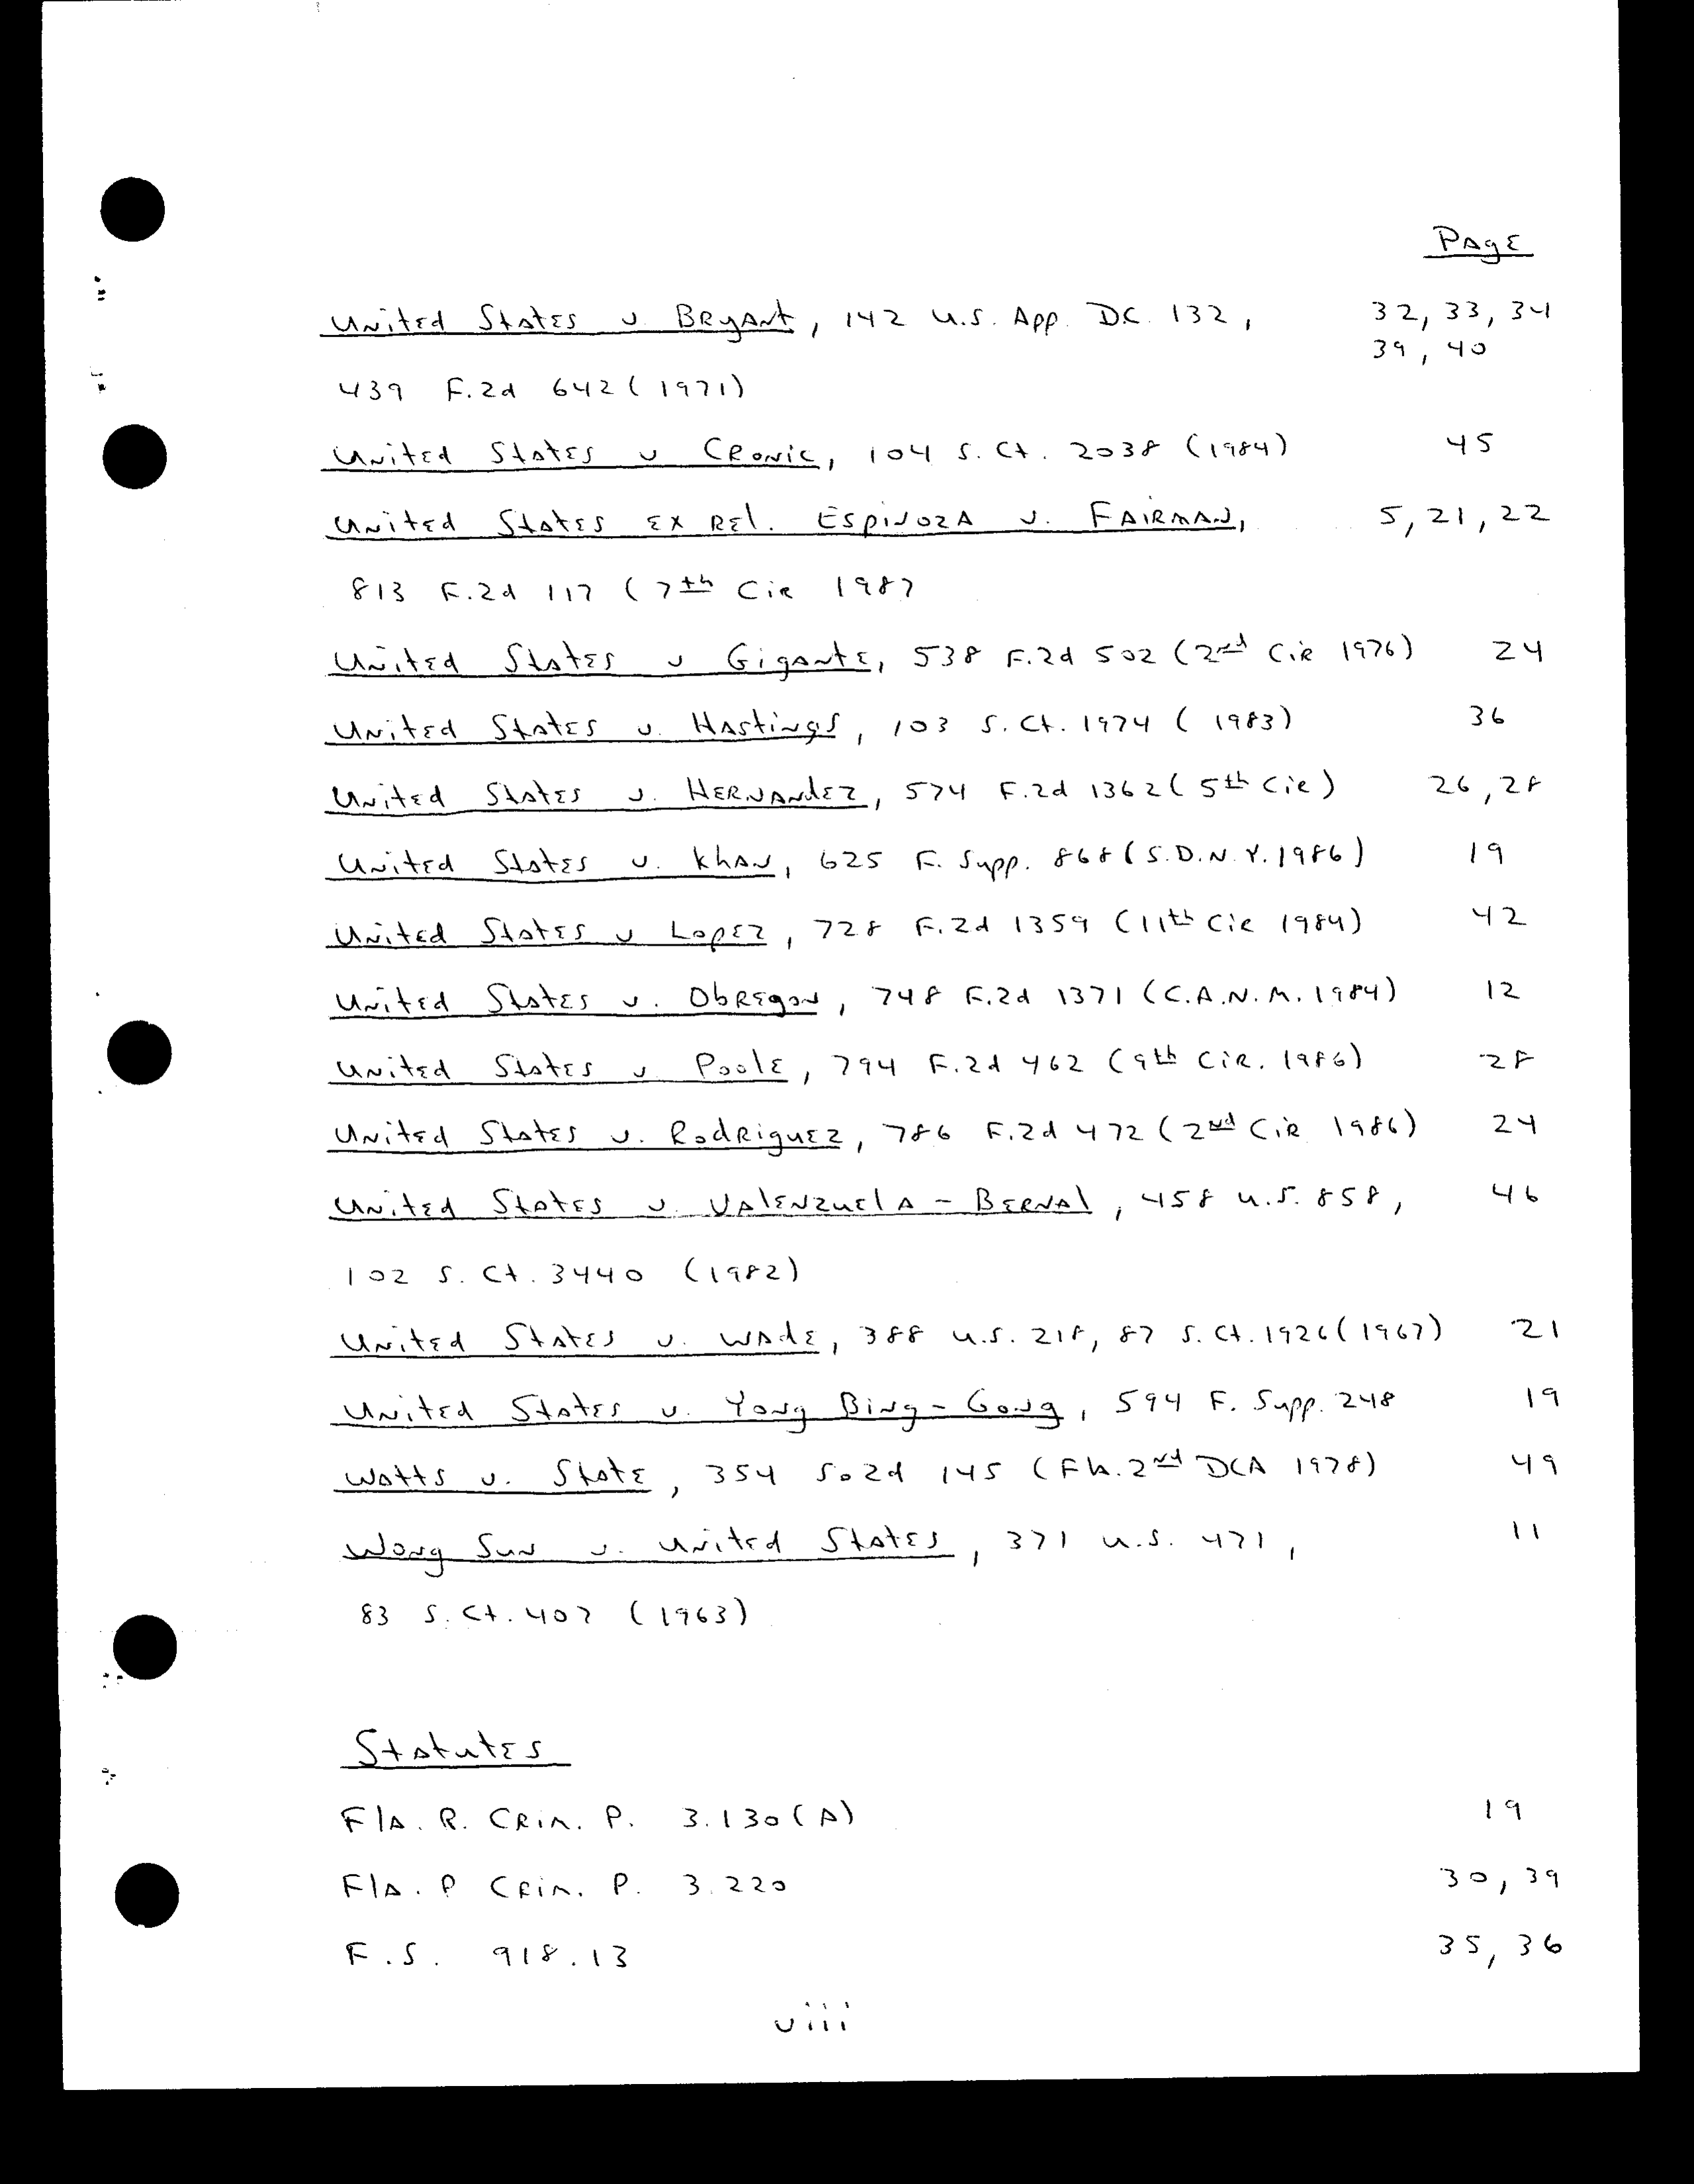 Page
United States v. Bryant, 142 U.S. App. D.C. 132, 32, 33, 34
39, 40
439 F.2d 642 (1971)
United States v Cronic, 104 S. Ct. 2038 (1984) 45
United States ex rel. Espinoza v. Fairman, 5, 21, 22
813 F.2d 117 (7th Cir 1987
United States v Gigante, 538 F.2d 502 (2nd Cir 1976) 24
United States v. Hastings, 103 S. Ct. 1974 (1983) 36
United States v. Hernandez, 574 F.2d 1362 (5th Cir) 26, 28
United States v. Khan, 625 F. Supp. 868 (S.D.N.Y. 1986) 19
United States v Lopez, 728 F.2d 1359 (11th Cir 1984) 42
United States v. Obregon, 748 F.2d 1371 (C.A.N.M. 1984) 12
United States v Poole, 794 F.2d 462 (9th Cir. 1986) 28
United States v. Rodriguez, 786 F.2d 472 (2nd Cir 1986) 24
United States v. Valenzuela - Bernal, 458 U.S. 858, 46
102 S. Ct. 3440 (1982)
United States v. Wade, 388 U.S. 218, 87 S. Ct. 1926 (1967) 21
United States v. Yong Bing - Gong, 594 F. Supp. 248 19
Watts v. State, 354 So2d 145 (Fla. 2nd DCA 1978) 49
Wong Sun v. United States, 371 U.S. 471, 11
83 S. Ct. 407 (1963)
Statutes
Fla. R. Crim. P. 3.130(A) 19
Fla. R Crim. P. 3.220 30, 39
F.S. 918.13 35, 36
viii